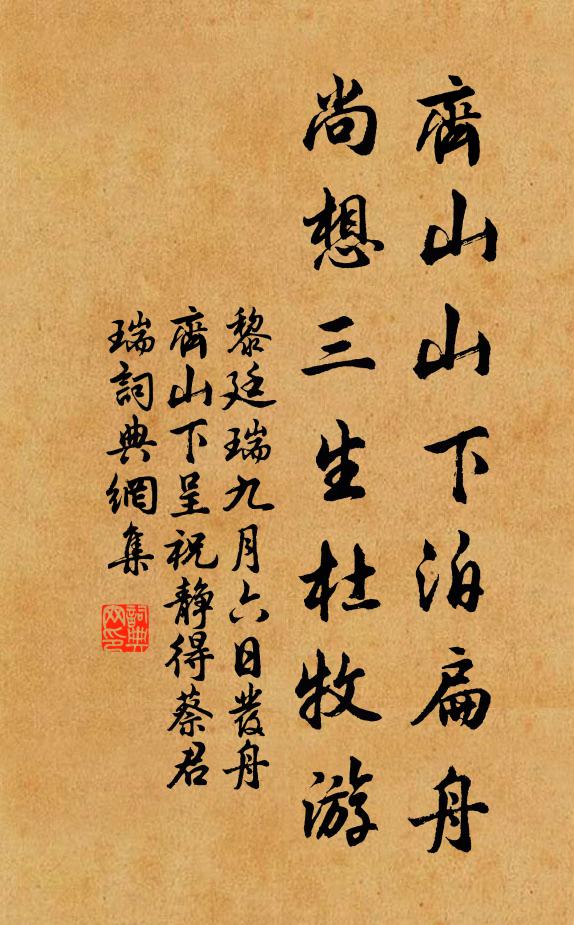 齊山山下泊扁舟
尚想三生杜牧游
黎廷瑞九月六日發舟
齊山下呈祝靜得蔡君
瑞詞典網集
詞典网印